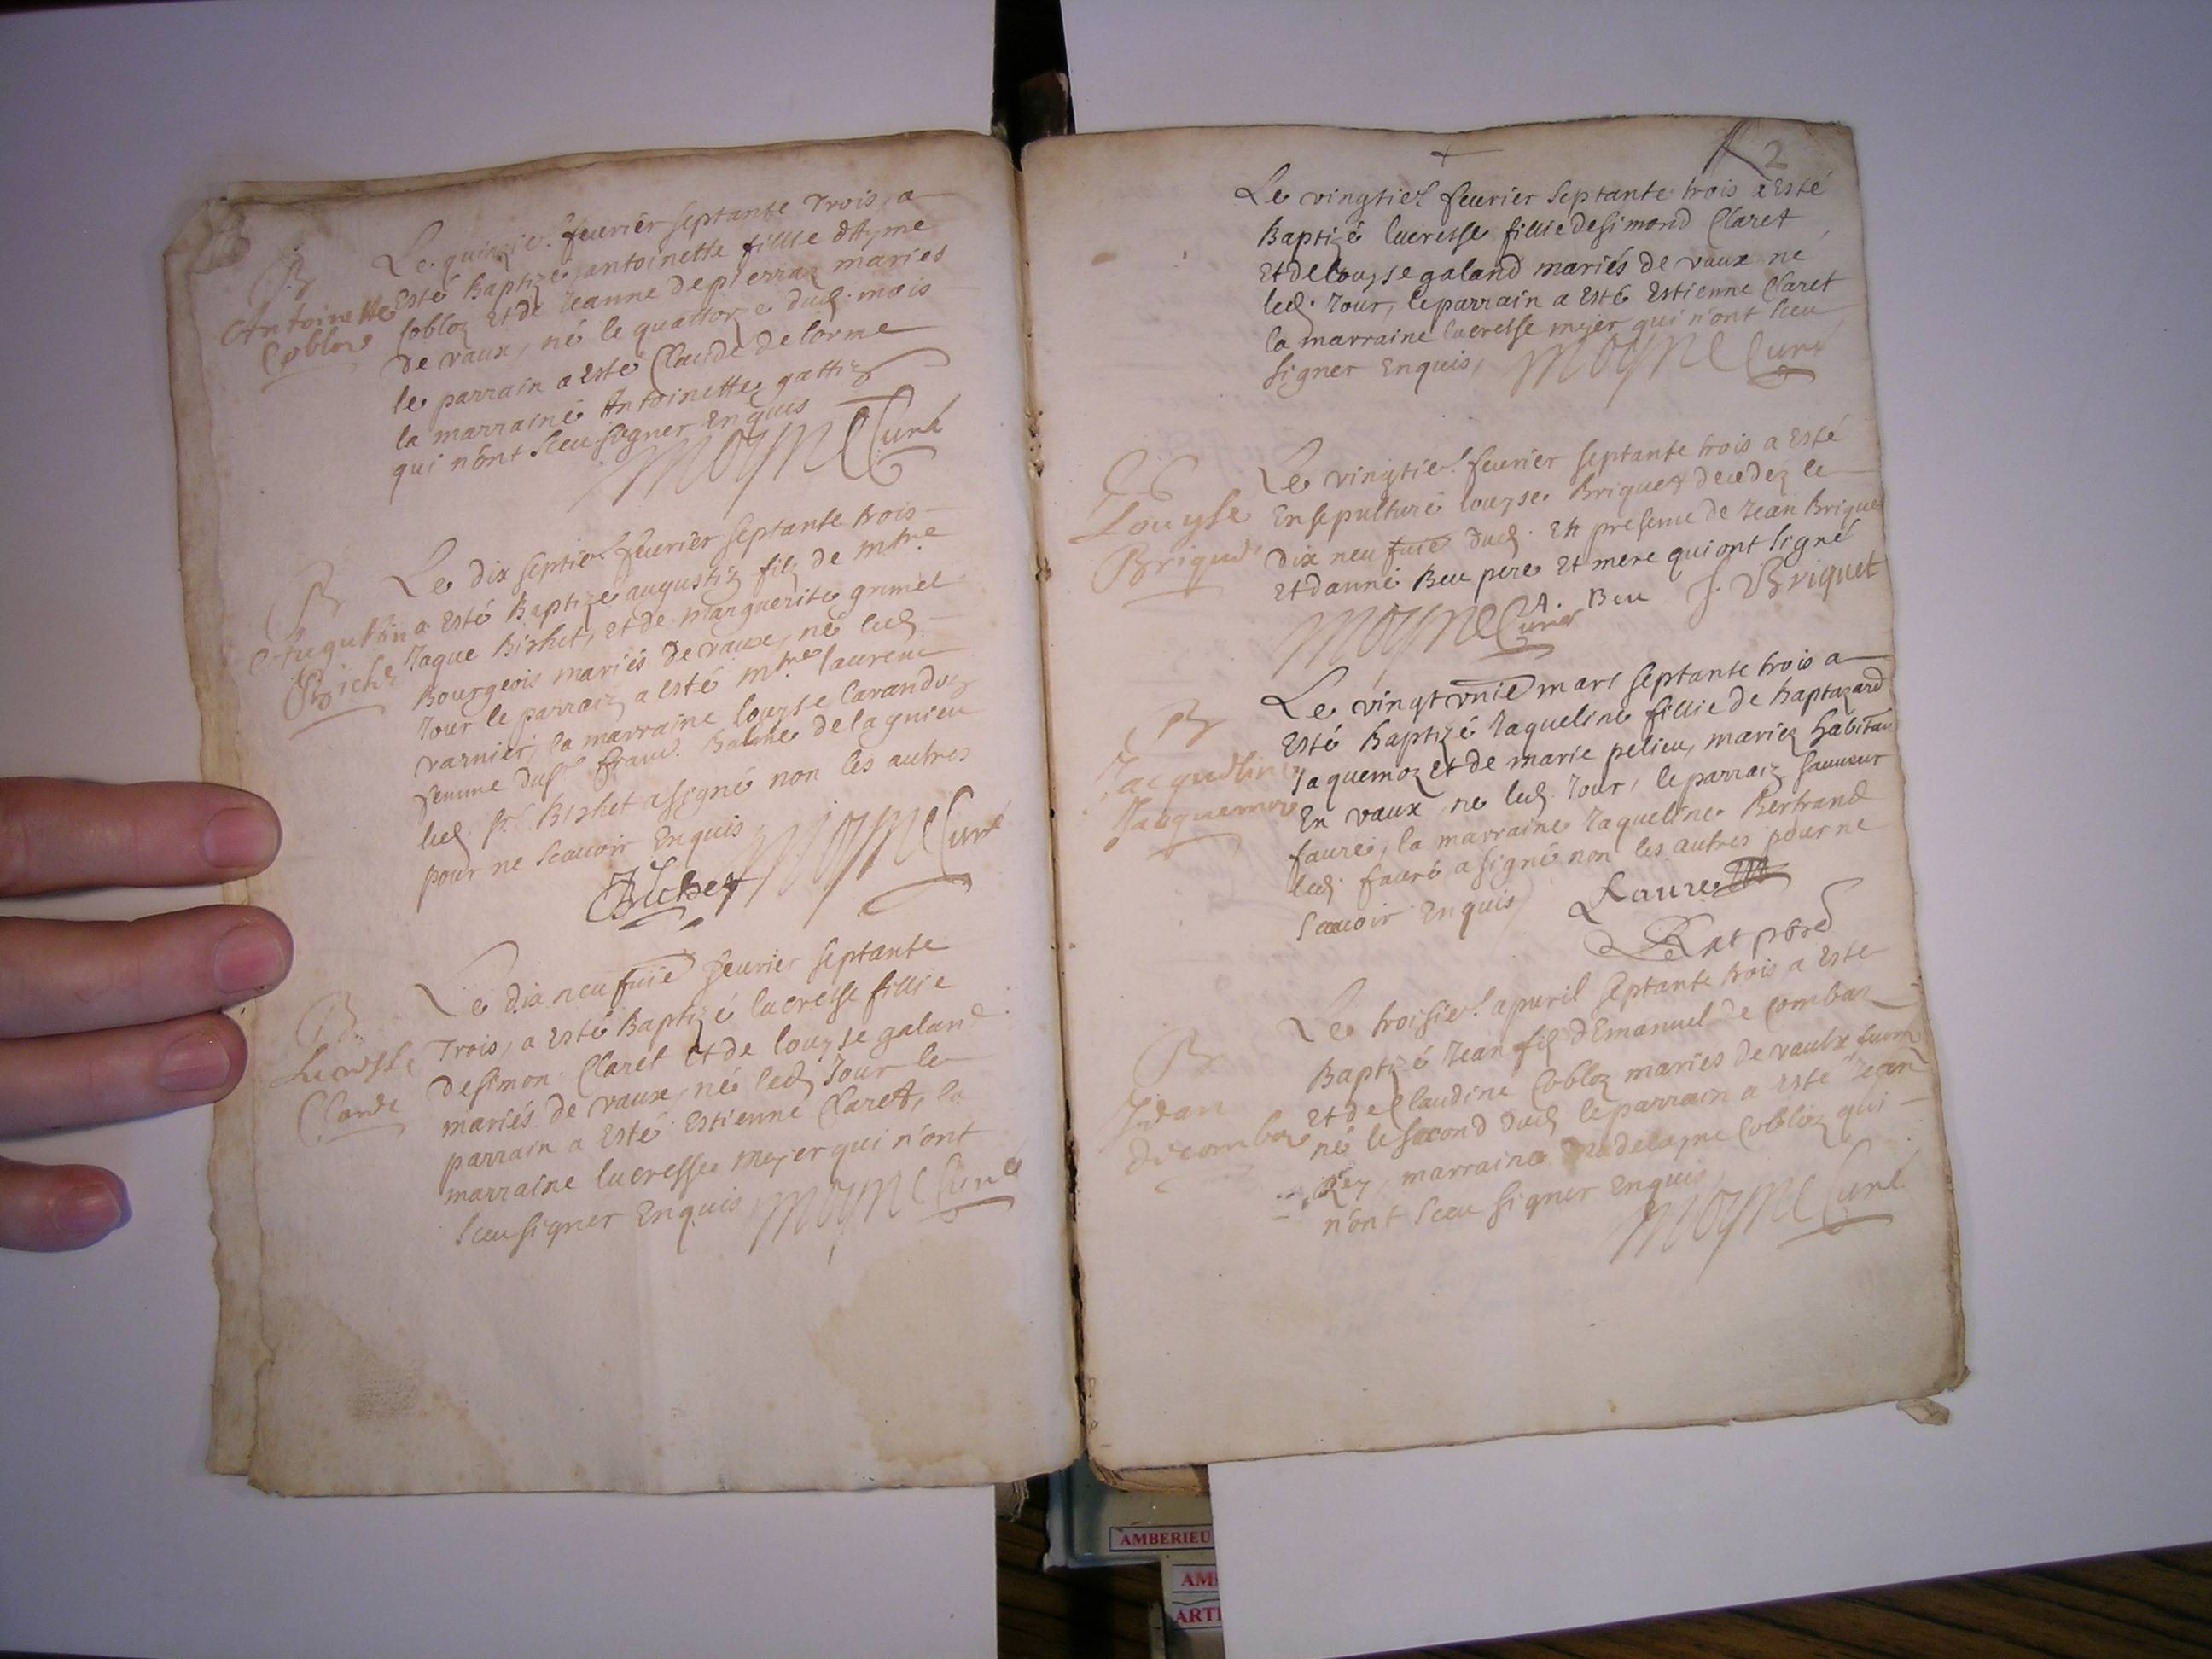 B
Antoinette
Cobloz
Le quinzie.^e feurier septante Trois, a
Esté Baptizé, antoinette fillie d'Ayme
Cobloz Et de Jeanne depierraz mariés
de vaux, né le quattorze dud. mois
le parrain a Esté Claude delorme
la marraine Antoinette gattiz
qui n'ont sceu signer Enquis
Moyne Curé
B
Augustin
Bichet
Le dix septie.^e feurier septante trois
a Esté Baptizé augustiz filz de M^tre
Jaque Bishet, et de marguerite grimel
Bourgeois mariés de vaux, né led.
Jour le parraiz a esté M^tre laurent
varnier, la marraine louyse
femme du s^r franc. Balme de lagnieu
led. s^r. Bishet a signé non les autres
pour ne scauoir Enquis
Bichet
Moyne Curé
B
Lucresse
Claret
Le dix neufuié feurier septante
Trois, a Esté Baptizé lucresse fillie
de simon Claret Et de louyse galand
mariés de vaux, né led. Jour le
parrain a Esté Estienne Claret, la
marraine lucresse meyer qui n'ont
sceu signer Enquis Moyne Curé
2
Le vingtie.^e feurier septante trois a Esté
Baptizé lucresse fillie de simond Claret
Et de louyse galand mariés de vaux né
led. Jour, le parrain a Esté Estienne Claret
la marraine lucresse meyer qui n'ont sceu
signer Enquis, Moyne Curé
Louyse
Briquet
Le vingtie.^e feurier septante trois a Esté
Ensepulturé louyse Briquet decedez le
dix neufuié dud. En presence de Jean Brique
Et d'anne Beu pere Et mere qui ont signé
Moyne Curé A. Beu J. Briquet
B
Jacqueline
Jacquemoz
Le vingt vnié mars septante trois a
Esté Baptizé Jaqueline fillie de baptazard
Jaquemoz et de marie pelieu, mariez habitan
En vaux, né led. Jour, le parraiz sauueur
fauré, la marraine Jaqueline Bertrand
led. fauré a signé non les autres pour ne
scauoir Enquis
B
Jean
decombaz
Le troisie.^e apuril septante trois a Este
Baptizé Jean filz d'Emanuel de Combaz
Et de Claudine Cobloz mariés de vaulx
né le second dud. le parrain a Esté Jean
Rey, marraine Madelayne Cobloz qui
n'ont sceu signer Enquis
Moyne Curé
AMBERIEU
AM
ARTE